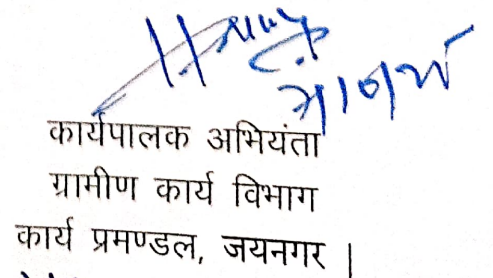 कार्यपालक अभियंता
ग्रामीण कार्य विभाग
कार्य प्रमण्डल, जयनगर |